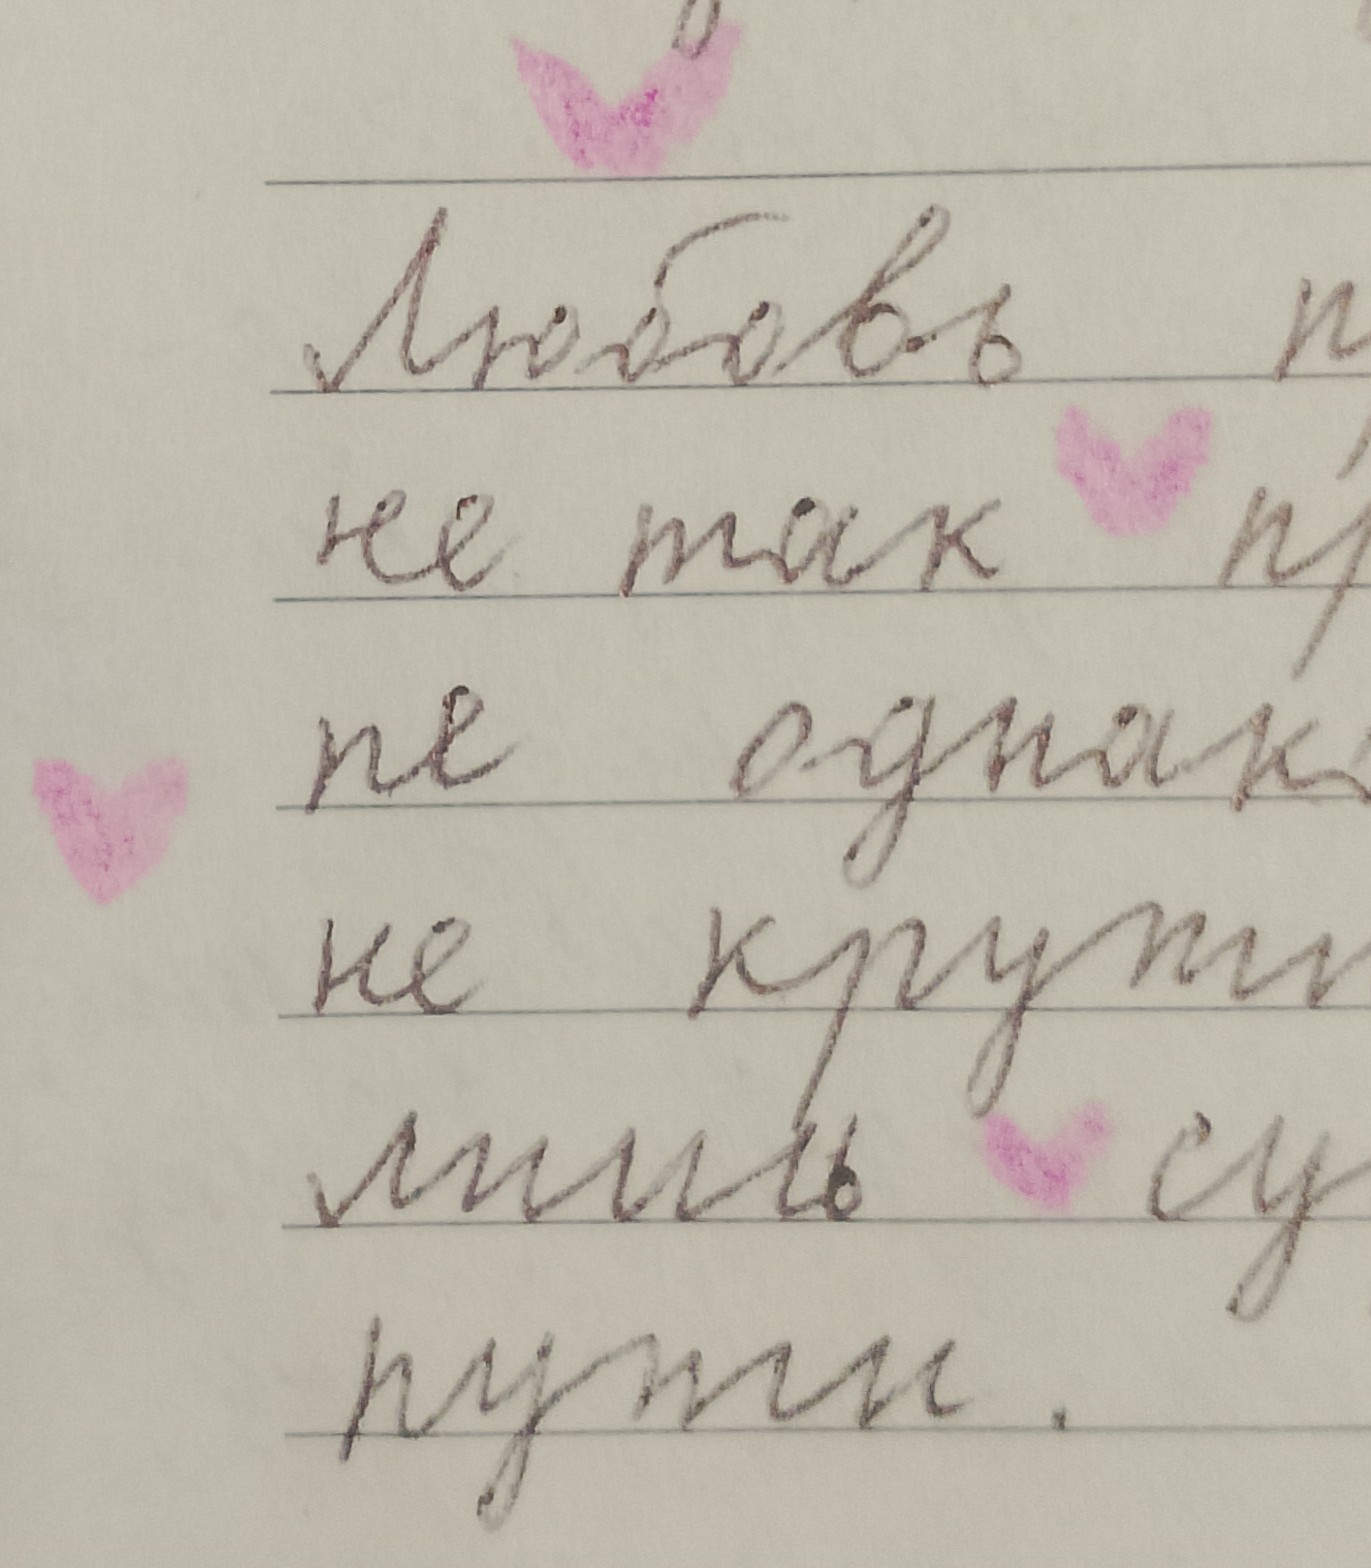 Любовь п
не так пр
не однак
не крути
лишь су
пути.